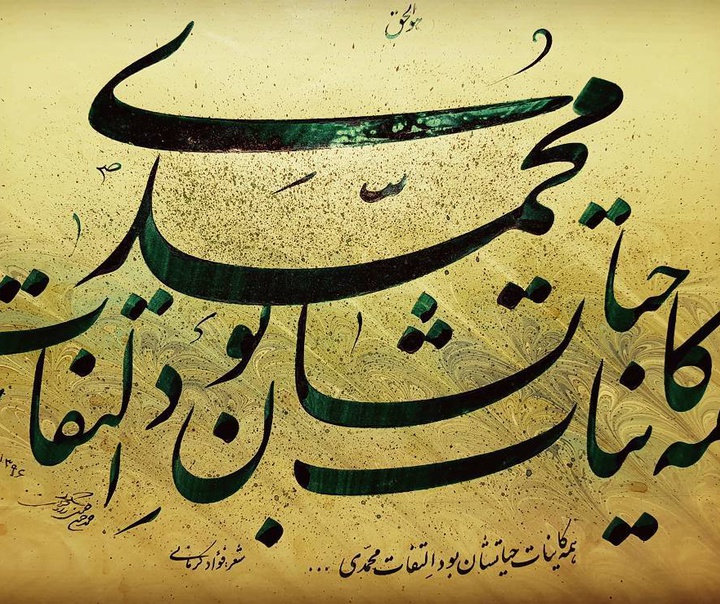 هوالحق
همه کاینات حیاتشان بود التفات محمّدی
۱۳۹۶
همه کاینات حیاتشان بود التفات محمّدی ...
شعر، فؤاد کرمانی